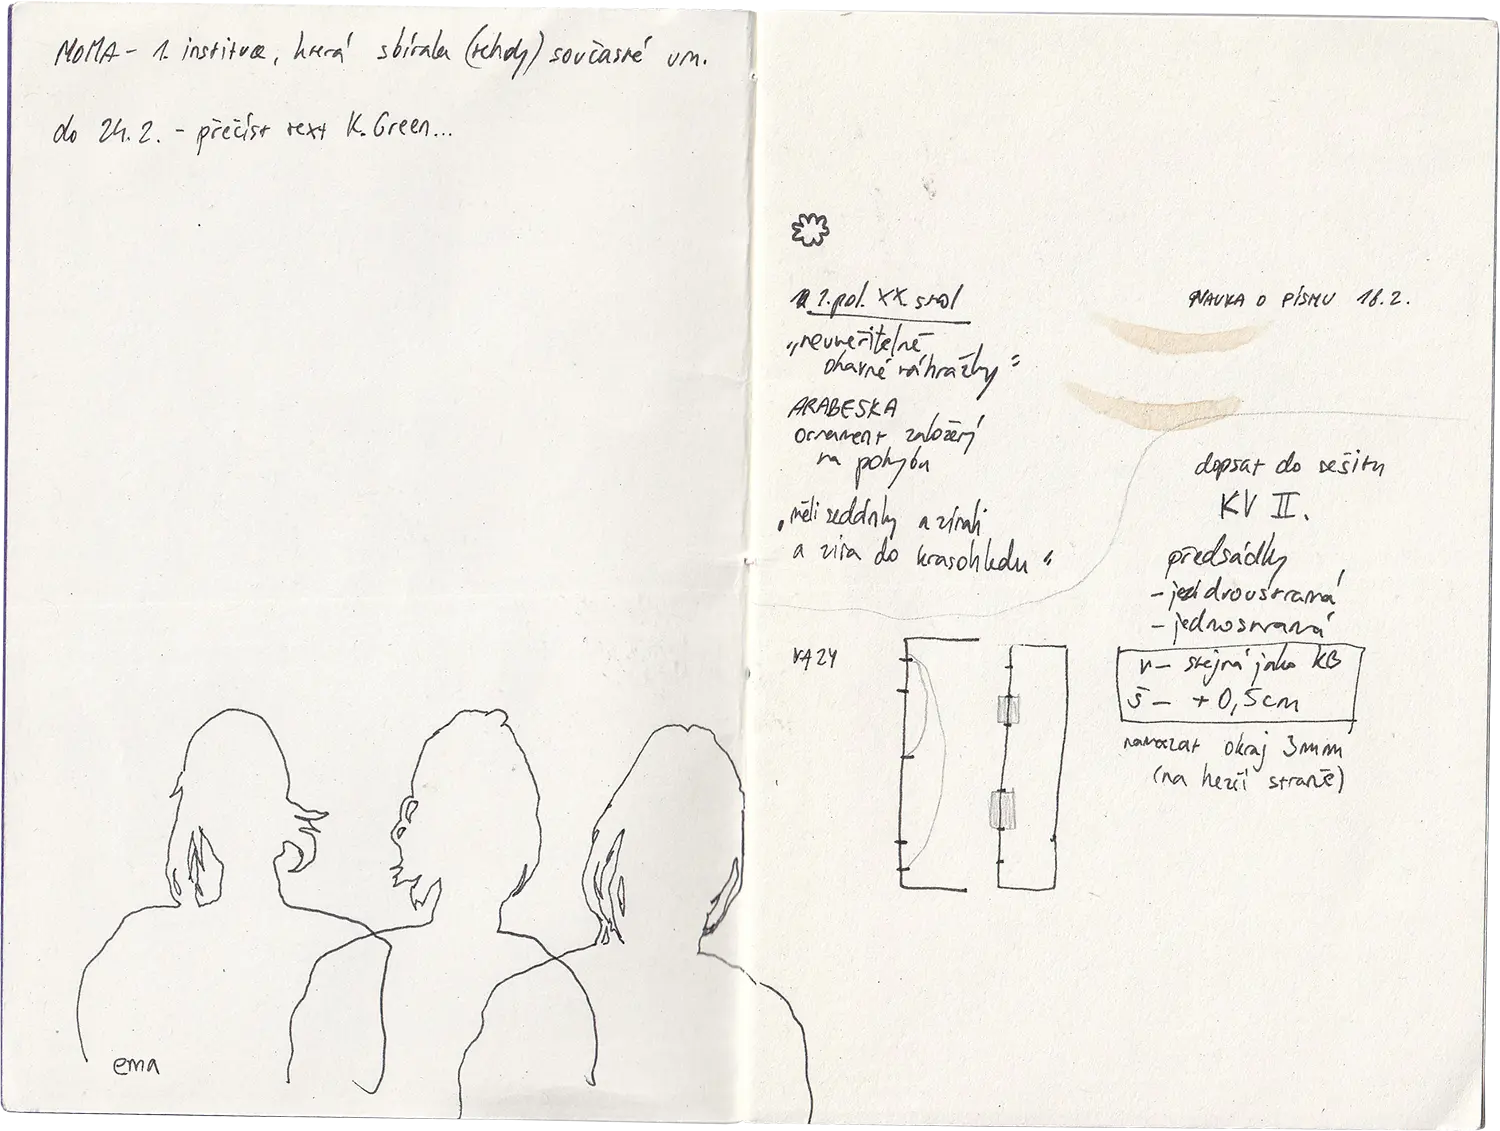 MOMA - 1. instituce, která sbírala (tehdy) současné um.
do 24.2. - přečíst text K. Green...
ema
2. pol. XX. stol
„neuvěřitelně
ohavné náhražky"
ARABESKA
ornament založený
na pohybu
„měli a zírali
a zírá do krasohledu"
VAZ4
NAUKA O PÍSMU 18.2.
dopsat do sešitu
KV II.
předsádky
- dvoustranná
- jednostranná
v - stejná jako KB
š - + 0,5cm
namazat okraj 3mm
(na hezčí straně)